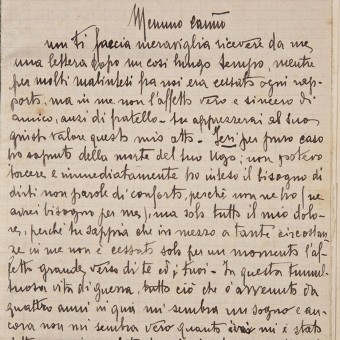 Memmo caro
non ti faccia meraviglia ricevere da me,
una lettera dopo un così lungo tempo, mentre
per molti malintesi fra noi era cessato ogni rap-
porto, ma in me non l'affetto vero e sincero di
amico, anzi di fratello. tu apprezzerai al suo
giusto valore questo mio atto. Ieri per puro caso
ho saputo della morte del tuo Ugo; non potevo
tacere e immediatamente ho inteso il bisogno di
dirti non parole di conforto, perché non ne ho (ne
avrei bisogno per me), ma solo tutto il mio dolo-
re, perché tu sappia che in mezzo a tante circostan-
ze in me non è cessato solo per un momento l'af-
fetto grande verso di te ed i tuoi. In questa tumul-
tuosa vita di guerra, tutto ciò che è avvenuto da
quattro anni in qua mi sembra un sogno e an-
cora non mi sembra vero quanto mi è stato